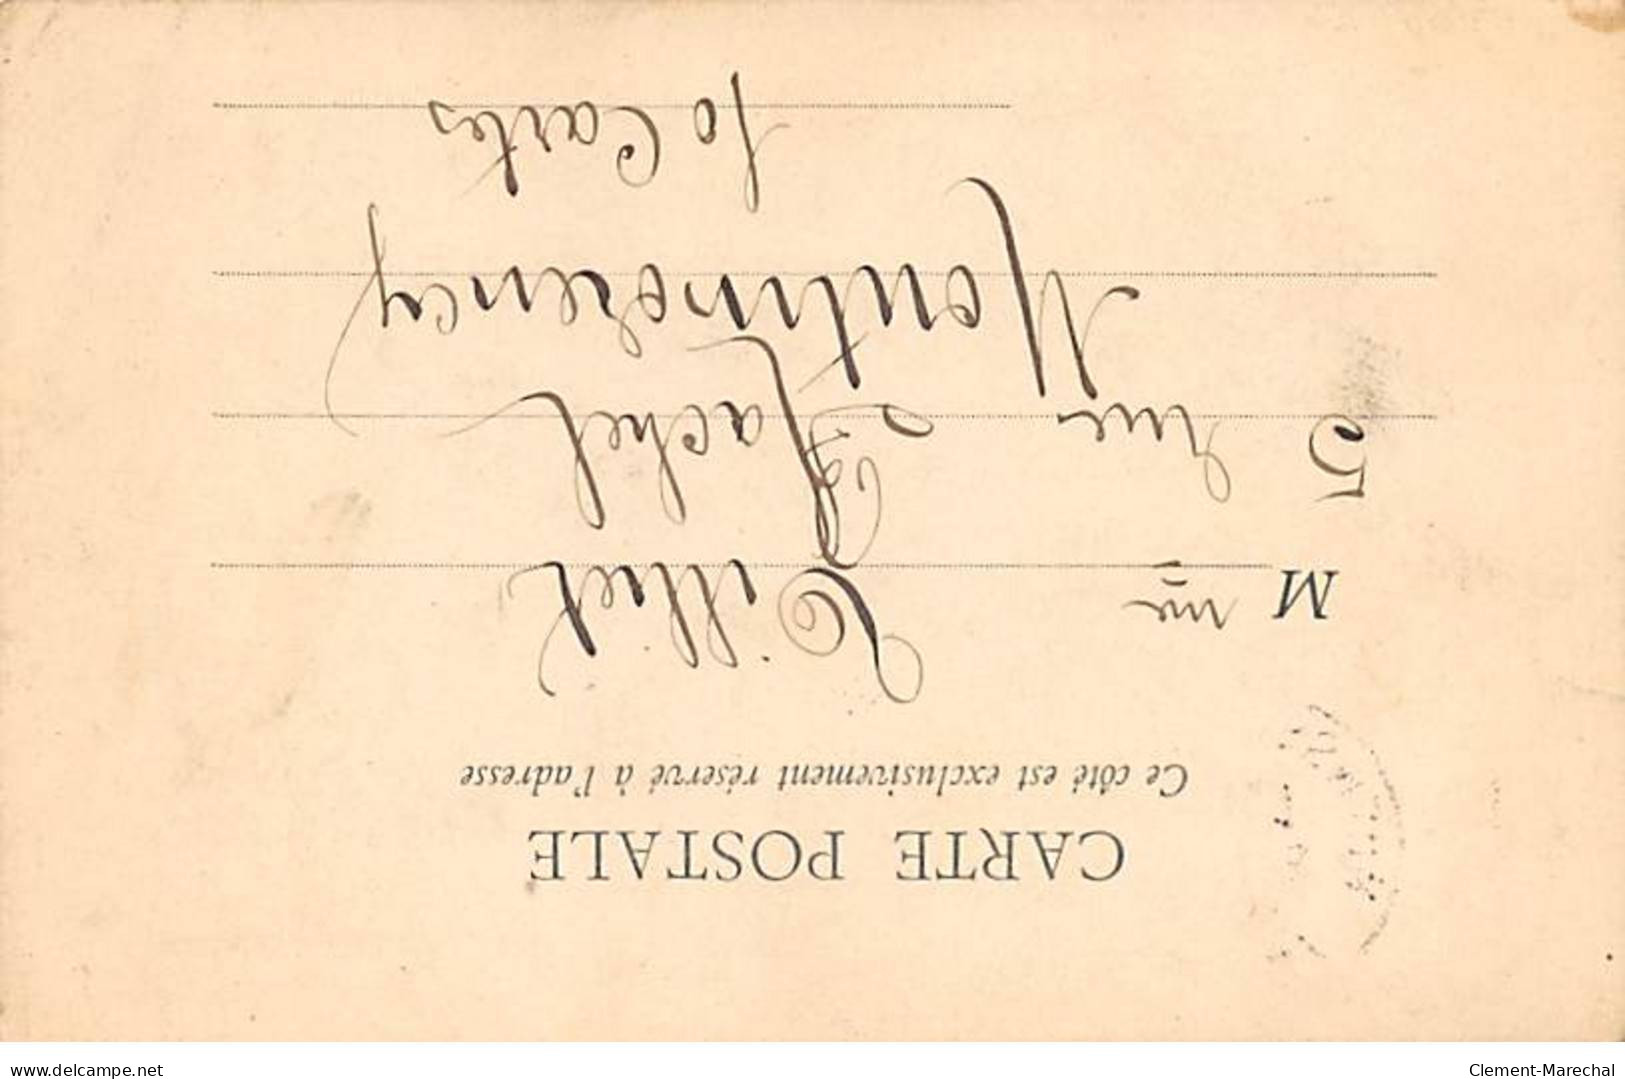 CARTE POSTALE
Ce côté est exclusivement réservé à l'adresse
M me Villiet
5 rue Rachel
Montmorency
10 Cartes
www.delcampe.net
Clement-Marechal